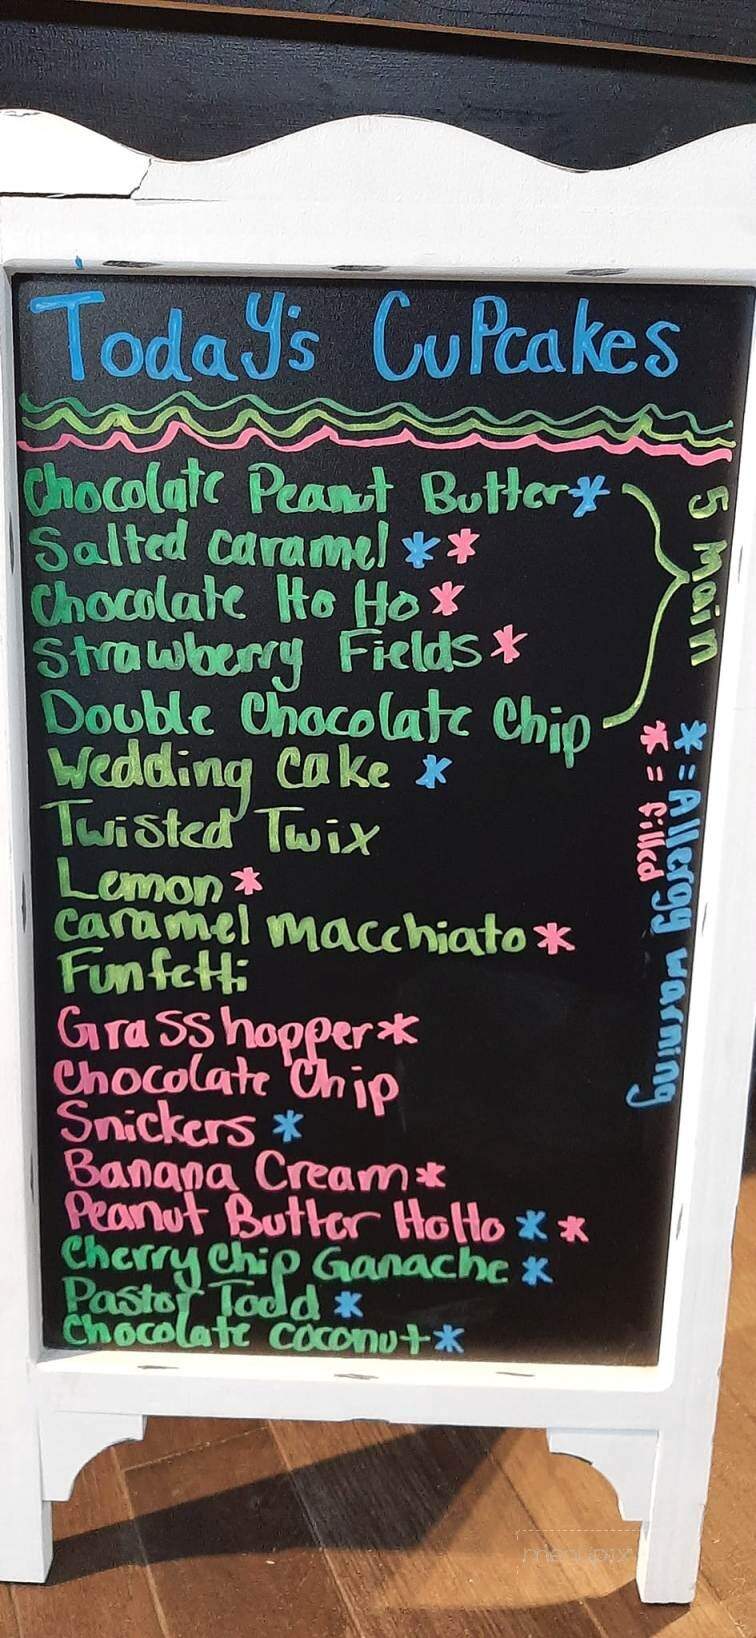 Today's Cupcakes
Chocolate Peanut Butter*
Salted caramel * *
Chocolate Ho Ho *
Strawberry Fields *
Double Chocolate Chip
5 main
Wedding Cake *
Twisted Twix
Lemon *
caramel macchiato *
Funfetti
Grasshopper *
Chocolate Chip
Snickers *
Banana Cream *
Peanut Butter HoHo * *
Cherry Chip Ganache *
Pastor Todd *
Chocolate coconut *
* = Allergy warning
* = filled
menupix